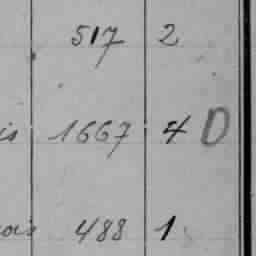 517 2
is 1667 4 D
ois 488 1